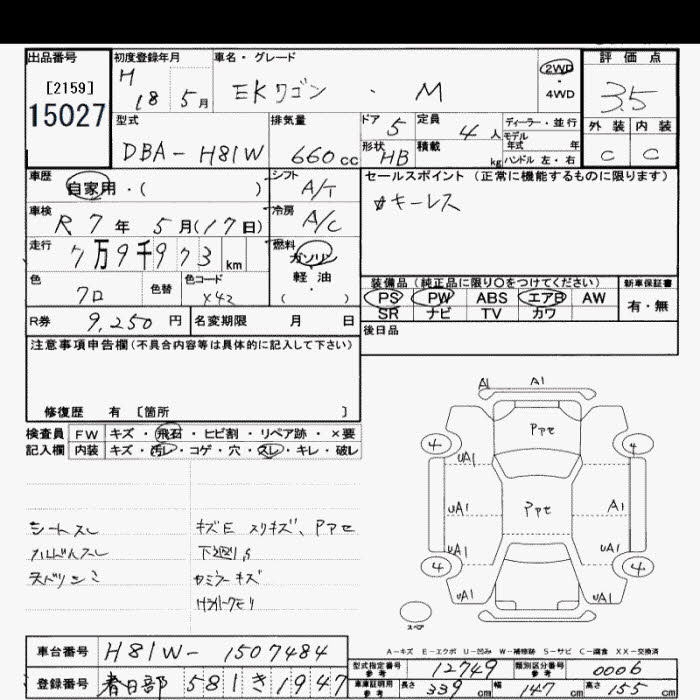 出品番号
[2159]
15027
初度登録年月
H
18 5月
車名・グレード
EKワゴン ・ M
2WD
・
4WD
評価点
3.5
外装 内装
C C
型式
DBA-H81W
排気量
660cc
ドア 5
定員 4人
形状 HB
積載 kg
ディーラー・並行
モデル年式 年
ハンドル 左・右
車歴
自家用・( )
シフト
A/T
車検
R 7年 5月(17日)
冷房
A/C
走行
7万9千973km
燃料
ガソリン
軽油
・
( )
色
クロ
色替
色コード
X42
セールスポイント (正常に機能するものに限ります)
キーレス
装備品 (純正品に限り○をつけてください)
PS PW ABS エアB AW
SR ナビ TV カワ
新車保証書
有・無
R券 9,250円
名変期限 月 日
後日品
注意事項申告欄(不具合内容等は具体的に記入して下さい)
修復歴 有 [箇所 ]
検査員 FW キズ・飛石・ヒビ割・リペア跡・×要
記入欄 内装 キズ・汚レ・コゲ・穴・スレ・キレ・破レ
シートスレ
ハンドルスレ
キズE スリキズ、Pアセ
下廻りS
カミラーキズ
ヘッドライトクモリ
A1 A1
Pアセ
4 4
UA1 UA1
UA1 Pアセ A1
UA1 UA1
4 4
UA1 UA1
スペア
A-キズ E-エクボ U-凹み W-補修跡 S-サビ C-腐食 XX-交換済
車台番号 H81W-1507484
登録番号 春日部 581 き 1947
型式指定番号 参考 12749
類別区分番号 参考 0006
車庫証明用 参考 長さ 339cm 幅 147cm 高さ 155cm